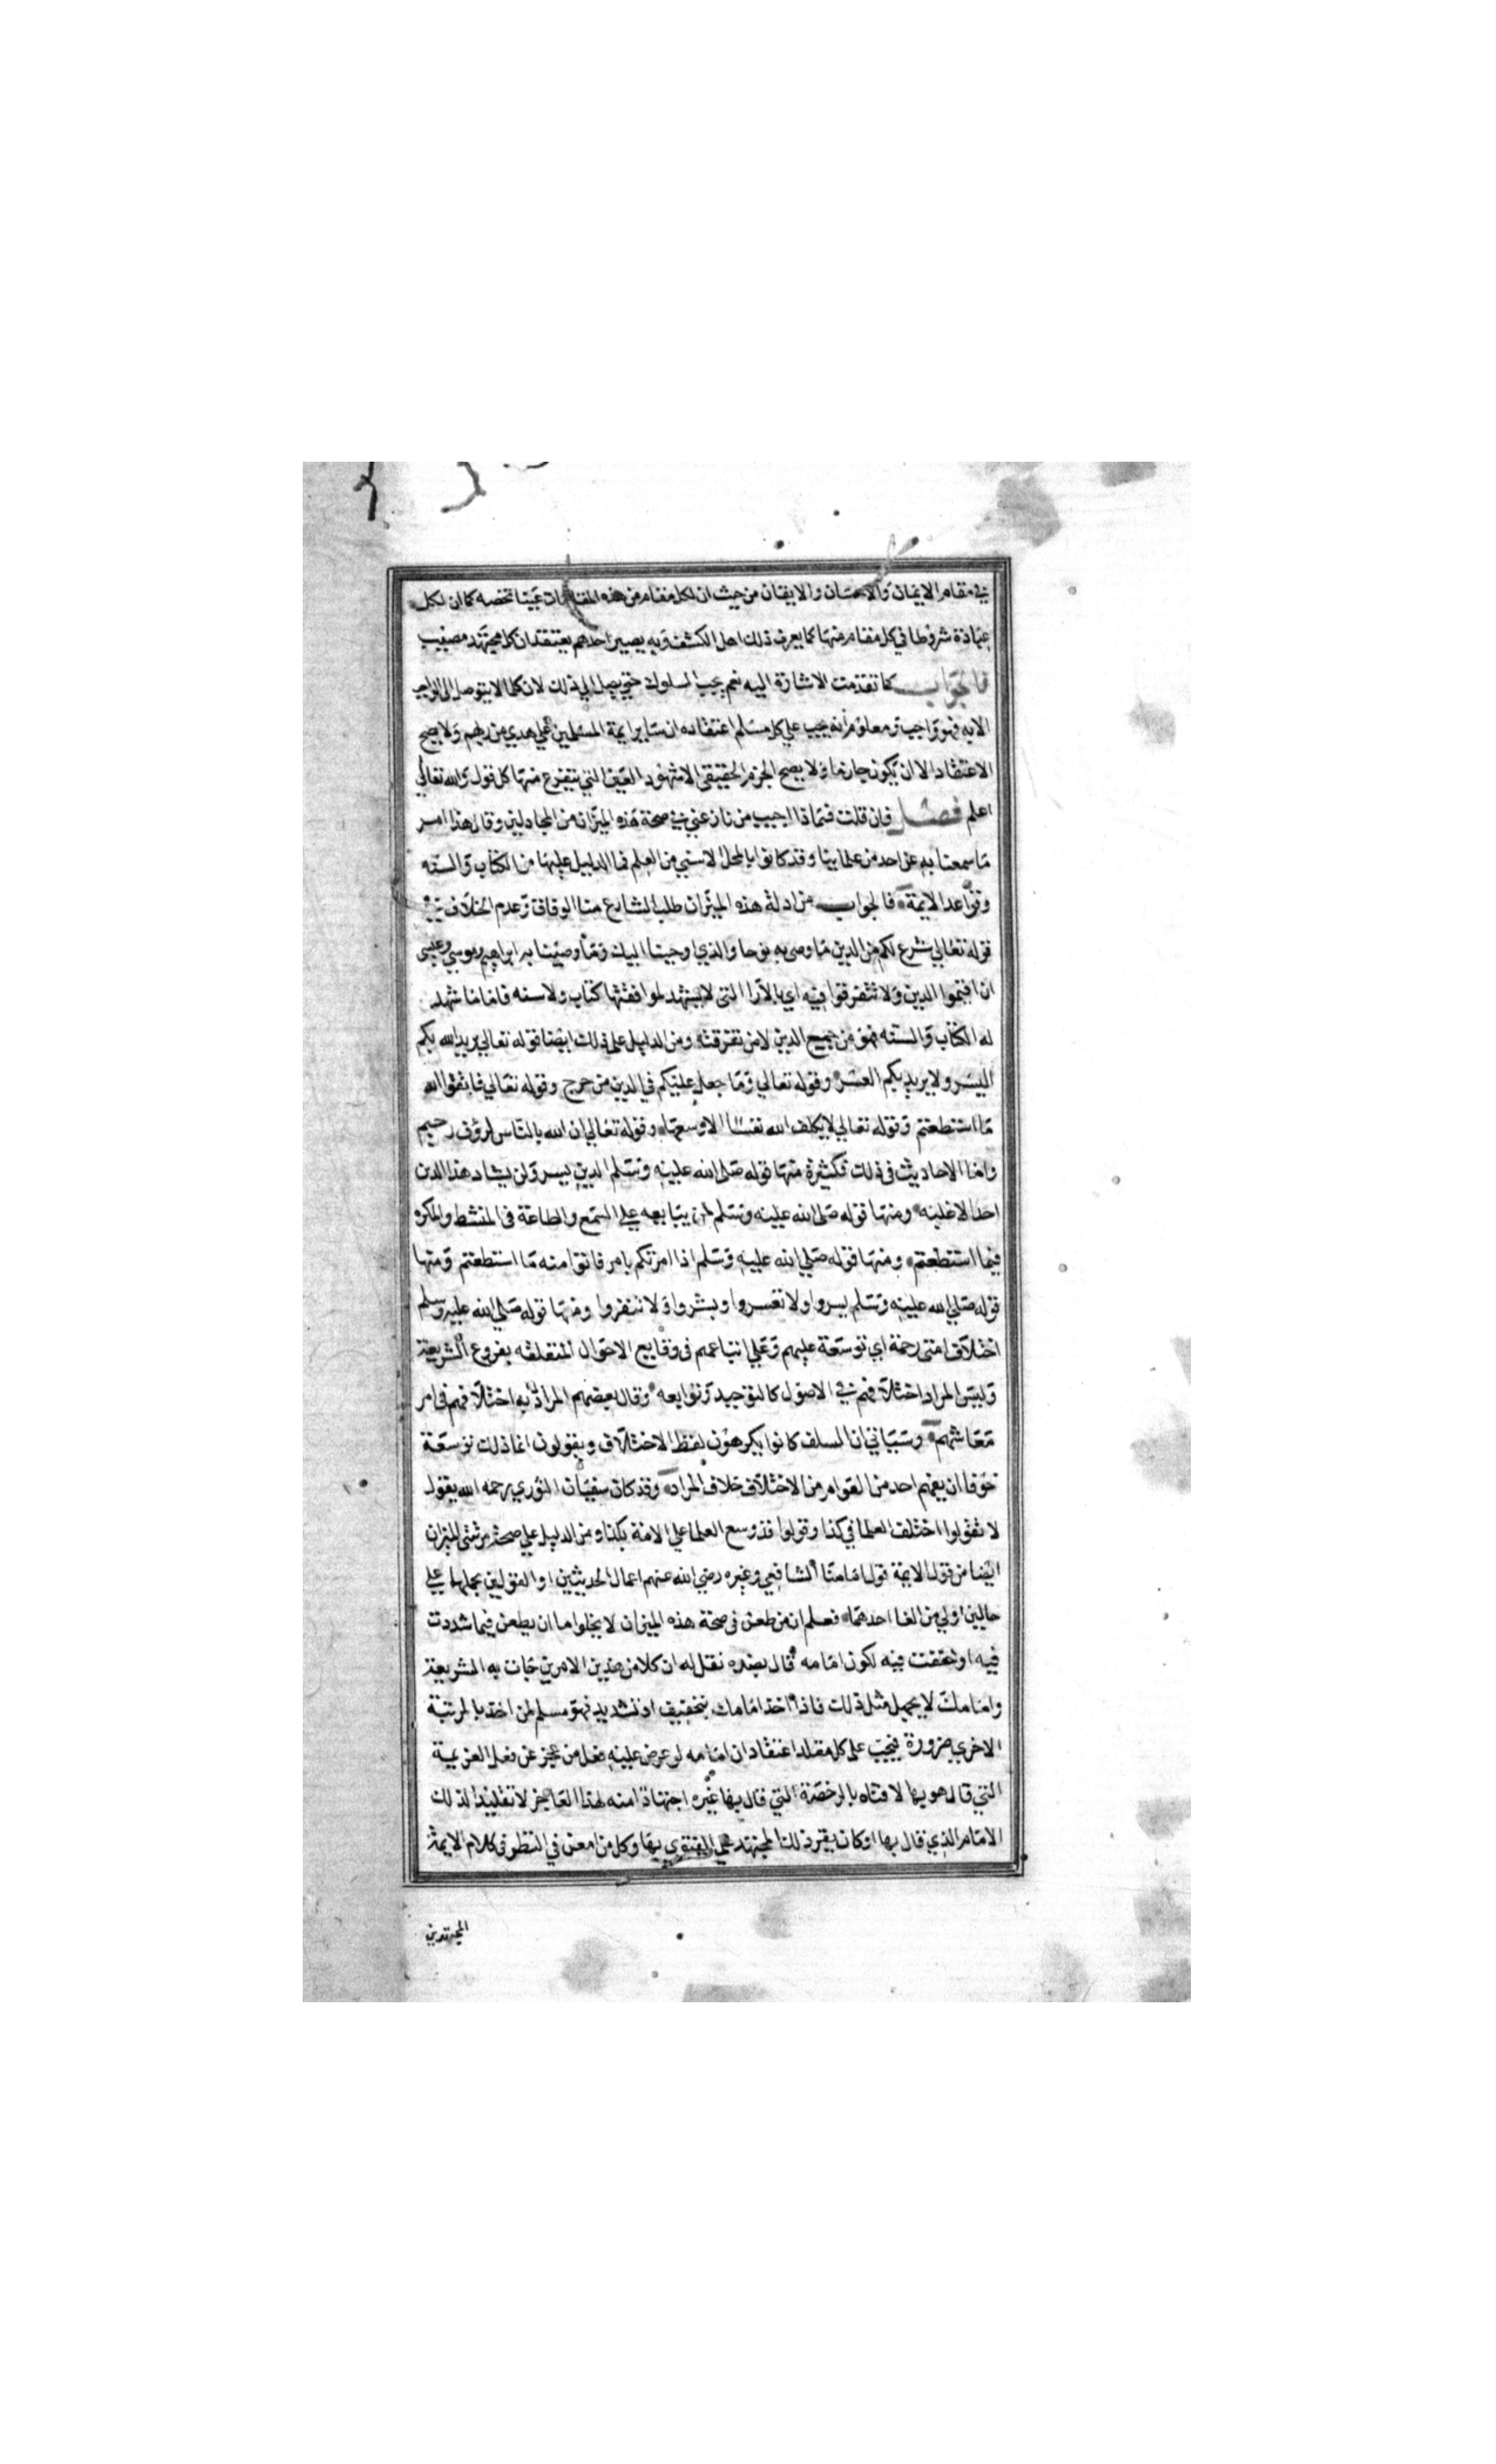 في مقام الايمان والاحسان والايقان من حيث ان لكل مقام من هذه المقامات عينا تخصه كما ان لكل
عبادة شروطا في كل مقام منها كما يعرف ذلك اهل الكشف وبه يصير احدهم يعتقد ان كل مجتهد مصيب
فالجواب كما تقدمت الاشارة اليه نعم يجب السلوك حتي يصل الي ذلك لان كلما لا يتوصل الى الواجب
الا به فهو واجب ومعلوم انه يجب علي كل مسلم اعتقاده ان ساير ايمة المسلمين علي هدي من ربهم ولا يصح
الاعتقاد الا ان يكون جازما ولا يصح الجزم الحقيقي الا بشهود العين التي يتفرع منها كل قول والله تعالي
اعلم فصل فان قلت فماذا اجيب من نازعني في صحة هذه الميزان من المجادلين وقال هذا امر
ما سمعنا به عن احد من علماينا وقد كانوا بالمحل الاسني من العلم فما الدليل عليها من الكتاب والسنه
وقواعد الايمة فالجواب من ادلة هذه الميزان طلب الشارع منا الوفاق وعدم الخلاف في
قوله تعالي شرع لكم من الدين ما وصي به نوحا والذي اوحينا اليك وما وصينا به ابراهيم وموسي وعيسى
ان اقيموا الدين ولا تتفرقوا فيه اي بالآرا التي لا يشهد لموافقتها كتاب ولا سنه فاما ما شهد
له الكتاب والسنه فهو من جميع الدين لا من تفرقته ومن الدليل على ذلك ايضا قوله تعالي يريد الله بكم
اليسر ولا يريد بكم العسر وقوله تعالي وما جعل عليكم في الدين من حرج وقوله تعالي فاتقوا الله
ما استطعتم وقوله تعالي لا يكلف الله نفسا الا وسعها وقوله تعالي ان الله بالناس لرؤف رحيم
واما الاحاديث في ذلك فكثيرة منها قوله صلى الله عليه وسلم الدين يسر ولن يشاد هذا الدين
احد الا غلبه ومنها قوله صلى الله عليه وسلم لمن يبايعه علي السمع والطاعة في المنشط والمكره
فيما استطعتم ومنها قوله صلي الله عليه وسلم اذا امرتكم بامر فاتوا منه ما استطعتم ومنها
قوله صلي الله عليه وسلم يسروا ولا تعسروا وبشروا ولا تنفروا ومنها قوله صلي الله عليه وسلم
اختلاف امتي رحمة اي توسعة عليهم وعلي اتباعهم في وقايع الاحوال المتعلقه بفروع الشريعة
وليس المراد اختلافهم في الاصول كالتوحيد وتوابعه وقال بعضهم المراد به اختلافهم في امر
معاشهم وسياتي ان السلف كانوا يكرهون لفظ الاختلاف ويقولون انما ذلك توسعة
خوفا ان يفهم احد من العوام من الاختلاف خلاف المراد وقد كان سفيان الثوري رحمه الله يقول
لا تقولوا اختلف العلما في كذا وقولوا قد وسع العلما علي الامة بكذا ومن الدليل علي صحة مرتبتي الميزان
ايضا من قول الايمة قول امامنا الشافعي وغيره رضي الله عنهم اعمال الحديثين او القولين بحملهما علي
حالين اولي من الغا احدهما فعلم ان من طعن في صحة هذه الميزان لا يخلوا ما ان يطعن فيما شددت
فيه او خففت فيه لكون امامه قال بضده نقل له ان كلا من هذين الامرين جات به الشريعة
وامامك لا يجهل مثل ذلك فاذا اخذ امامك بتخفيف او تشديد فهو مسلم لمن اخذ بالمرتبة
الاخري ضرورة فيجب على كل مقلد اعتقاد ان امامه لو عرض عليه فعل من عجز عن فعل العزيمة
التي قال هو بها لافتاه بالرخصة التي قال بها غيره اجتهادا منه لهذا العاجز لا تقليدا لذلك
الامام الذي قال بها او كان يقر ذلك المجتهد علي الفتوي بها وكل من امعن في النظر في كلام الايمة
المجتهدين